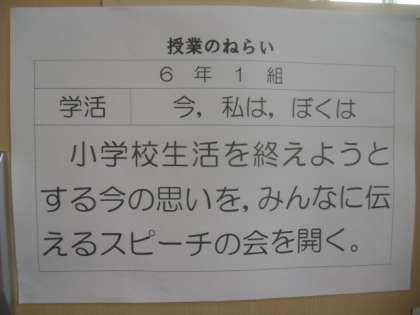 授業のねらい
6年1組
学活 今，私は，ぼくは
小学校生活を終えようと
する今の思いを，みんなに伝
えるスピーチの会を開く。